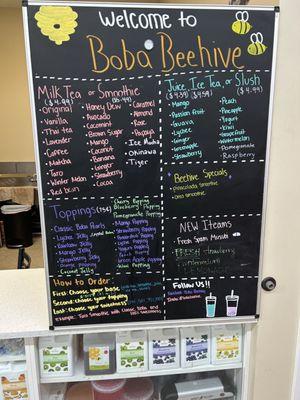 Welcome to
Boba Beehive
Milk Tea or Smoothie
($4.99)
Original
Vanilla
Thai tea
Lavender
Coffee
Matcha
Taro
Winter Melon
Red bean
Honey Dew
Avocado
Coconut
Brown Sugar
Mango
Coconut
Banana
Ginger
Strawberry
Cocoa
Caramel
Almond
Rose
Papaya
Okinawa
Tiger
Juice, Ice Tea, or Slush
Mango
Passion fruit
Guava
Lychee
Strawberry
Peach
Pineapple
Yogurt
Kiwi
Grapefruit
Watermelon
Pomegranate
Raspberry
Beehive Specials
Pinacolada Smoothie
Oreo Smoothie
Toppings (75¢)
Classic Boba Pearls
Lychee Jelly
Rainbow Jelly
Mango Jelly
Strawberry Jelly
Coffee Jelly
Coconut Jelly
Cherry Popping
Blueberry Popping
Pomegranate Popping
Mango Popping
Strawberry Popping
Lychee Popping
Yogurt Popping
Green Apple Popping
Kiwi Popping
NEW Iteams
Fresh Spam Musubi
FRESH strawberry
LEMONADE
How to Order
First: Choose your base
Second: Choose your topping
Last: Enjoy
Example: Taro Smoothie with Classic Boba
Follow US!